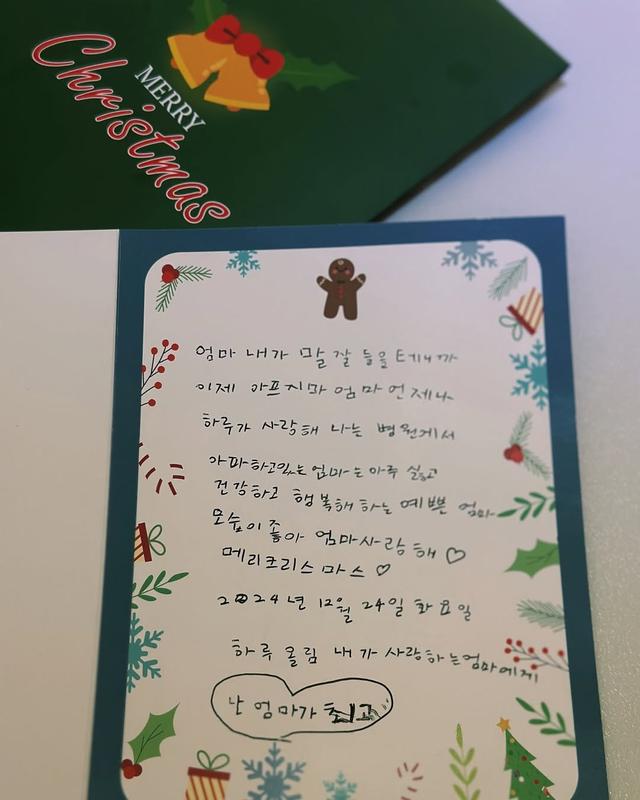 MERRY
Christmas
엄마 내가 말 잘 들을 테니까
이제 아프지마 엄마 언제나
하루가 사랑해 나는 병원에서
아파하고있는 엄마는 아주 싫고
건강하고 행복해 하는 예쁜 엄마
모습이 좋아 엄마사랑해♡
메리크리스마스♡
2024년 12월 24일 화요일
하루 올림 내가 사랑하는엄마에게
난 엄마가 최고